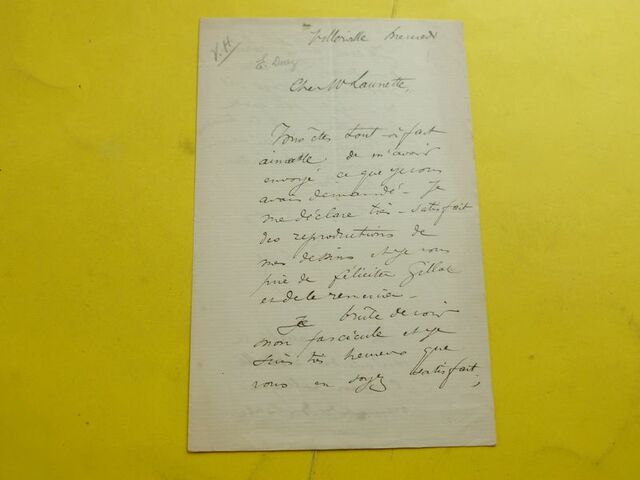 Villerville Mercredi
V.H
E. Duez
Cher Mr Launette,
Vous êtes tout à fait
aimable de m'avoir
envoyé ce que je vous
avais demandé - Je
me déclare très satisfait
des reproductions de
mes dessins et je vous
prie de féliciter Gillot
et de le remercier -
Je brûle de voir
mon fascicule et je
suis très heureux que
vous en soyez satisfait,